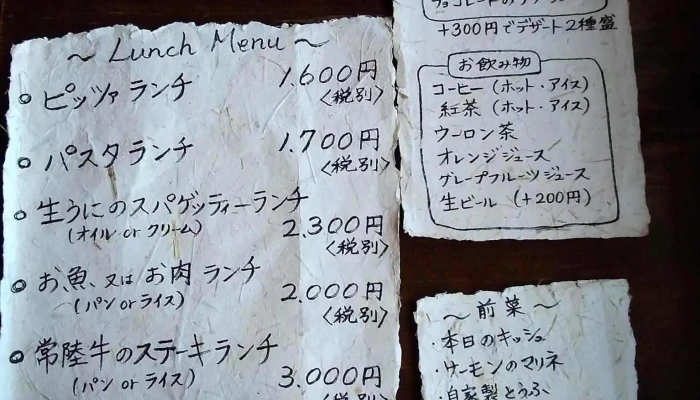 ～ Lunch Menu ～
ピッツァランチ 1.600円
〈税別〉
パスタランチ 1.700円
〈税別〉
生うにのスパゲッティーランチ
(オイル or クリーム) 2.300円
〈税別〉
お魚、又は お肉 ランチ
(パン or ライス) 2.000円
〈税別〉
常陸牛のステーキランチ
(パン or ライス) 3.000円
〈税別〉
+300円でデザート2種盛
お飲み物
コーヒー (ホット・アイス)
紅茶 (ホット・アイス)
ウーロン茶
オレンジジュース
グレープフルーツジュース
生ビール (+200円)
～ 前菜 ～
・本日のキッシュ
・サーモンのマリネ
・自家製とうふ